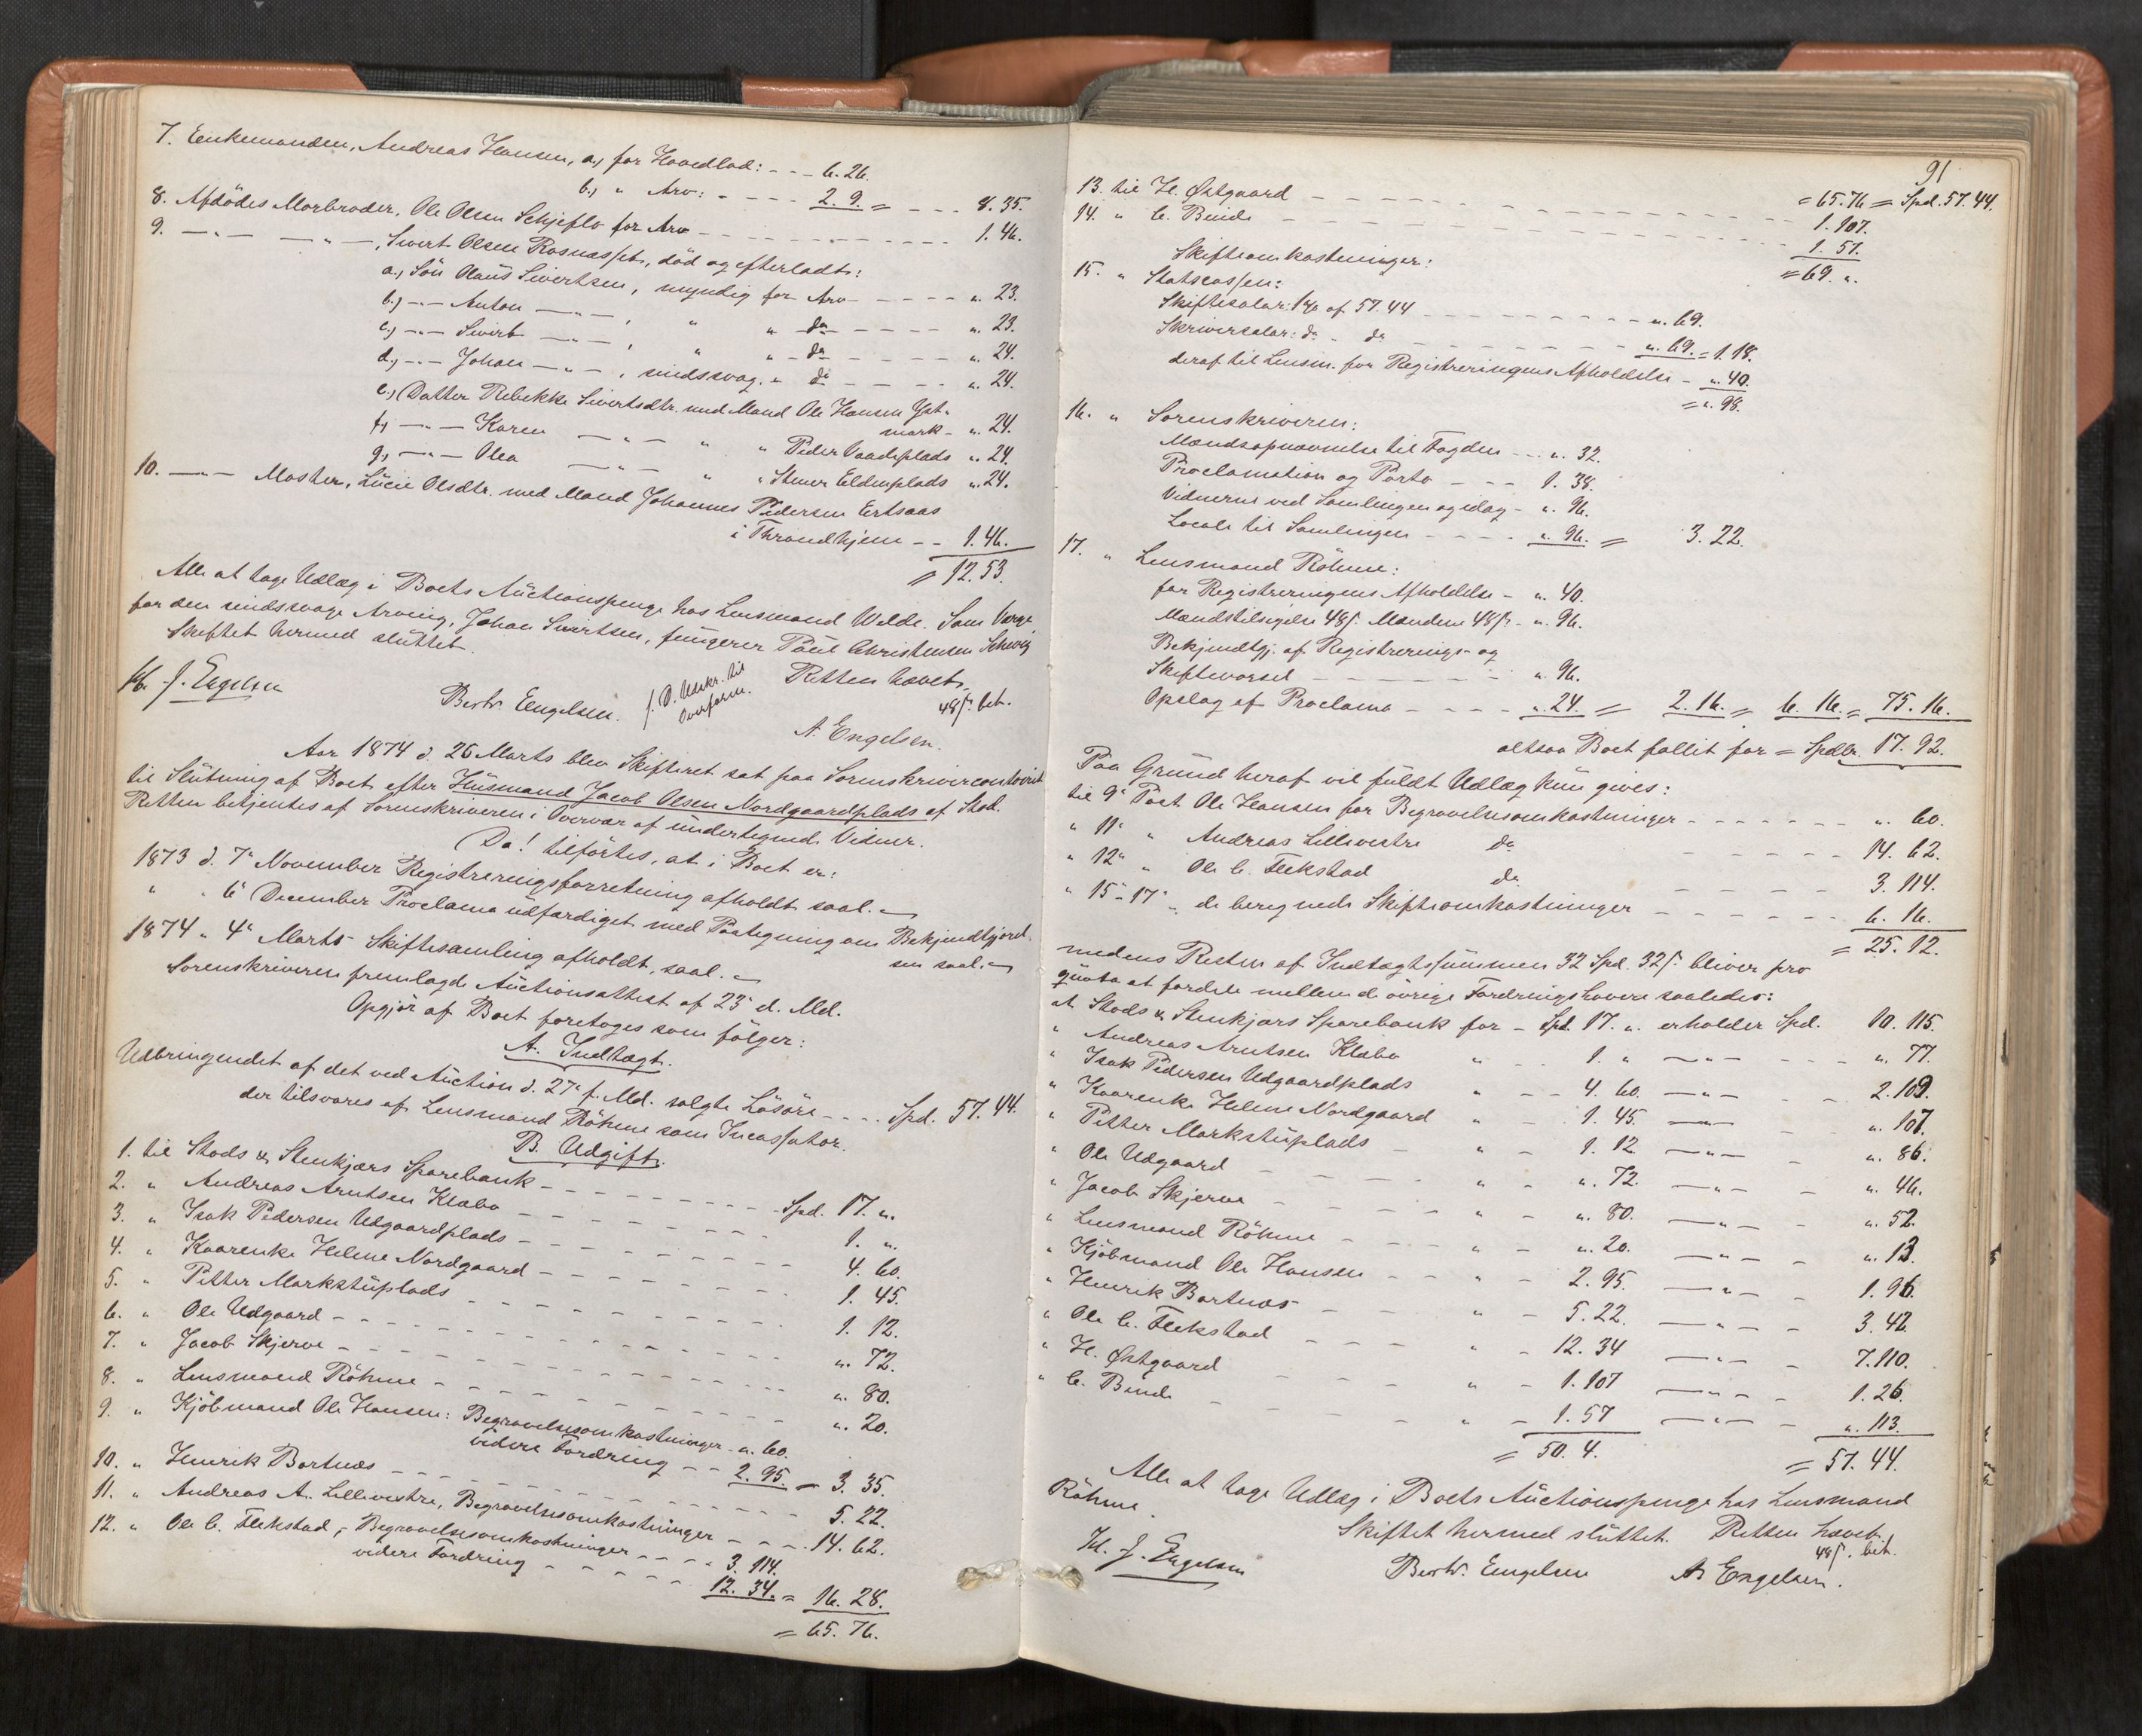 7. Enkemanden, Andreas Hansen, a, for Hovedlod: - - - 6. 26.
b, " Arv: - - - - 2. 9. = - - - 8. 35.
8. Afdødes Morbroder, Ole Olsen Schjeflo for Arv - - - - - - 1. 46.
9. —"— —"—, Sivert Olsen Rosnæsset, död og efterladt:
a, Sön Olaus Sivertsen, myndig for Arv - - - - - ". 23.
b, —"— Anton —"—, " " do - - - - - ". 23.
c, —"— Sivert —"—, " " do - - - - ". 24.
d, —"— Johan —"—, sindssvag. " do - - - - ". 24.
e, Datter Rebekke Sivertsdtr. med Mand Ole Hansen Yst-
mark - ". 24.
f, —"— Karen —"— " " Peder Vaadeplads ". 24.
g, —"— Olea —"— " " Stener Eldenplads ". 24.
10. —"— Moster, Lücie Olsdtr. med Mand Johannes Pedersen Ertsaas
i Throndhjem - - 1. 46.
= 12. 53.
Alle at tage Udlæg i Boets Auctionspenge hos Lensmand Welde. Som Verge
for den sindssvage Arving, Johan Sivertsen, fungerer Paul Christensen
Skiftet hermed sluttet. Retten hævet.
48 ſ. bet.
H. J. Engelsen Berthr. Engelsen. f. D. Udskr. til Overform. A. Engelsen.
Aar 1874 d. 26 Marts blev Skifteret sat paa Sorenskrivercontoiret
til Slutning af Boet efter Huusmand Jacob Olsen Nordgaardplads af Stod.
Retten betjentes af Sorenskriveren i Overvær af undertegnede Vidner.
Da! tilförtes, at i Boet er:
1873 d. 7de November Registreringsforretning afholdt saal. —
" " 6te December Proclama udfærdiget med Paategning om Bekjendtgjørel-
sen saal. —
1874 " 4de Marts Skiftesamling afholdt, saal. —
Sorenskriveren fremlagde Auctionsattest af 23de d. Md.
Opgjör af Boet foretoges som fölger:
A. Indtægt.
Udbringendet af det ved Auction d. 27de f. Md. solgte Lösöre - - - Spd. 57. 44.
der tilsvares af Lensmand Röhme som Incassator.
B. Udgift.
1. til Stods & Stenkjærs Sparebank - - - - - - - Spd. 17. ".
2. " Andreas Arntsen Klæbo - - - - - - - 1. ".
3. " Isak Pedersen Udgaardplads - - - - - - - 4. 60.
4. " Kaarenke Helene Nordgaard - - - - - - - 1. 45.
5. " Petter Markstuplads - - - - - - - 1. 12.
6. " Ole Udgaard - - - - - - - ". 72.
7. " Jacob Skjerve - - - - - - - ". 80.
8. " Lensmand Röhme - - - - - - - ". 20.
9. " Kjöbmand Ole Hansen: Begravelsesomkostninger - ". 60.
videre Fordring - - 2. 95. = 3. 35.
10. " Henrik Bartnæs - - - - - - - 5. 22.
11. " Andreas A. Lillevestre, Begravelsesomkostninger - - - - 14. 62.
12. " Ole C. Flekstad, Begravelsesomkostninger - - - - 3. 114.
videre Fordring - - - - - 12. 34. = 16. 28.
= 65. 76.
91
= 65. 76 = Spd. 57. 44.
13. til H. Østgaard - - - - - - - 1. 107.
14. " C. Binde - - - - - - - 1. 57.
= 69. ".
Skifteomkostninger:
15. " Statscassen:
Skiftesalær: 1 % af 57. 44 - - - - - - - ". 69.
Skriversalær: do - do - - - - - - - ". 69. = 1. 18.
deraf til Lensm. for Registreringens Afholdelse - ". 40.
= ". 98.
16. " Sorenskriveren:
Mandsopnævnelse til Fogden - - - ". 32.
Proclamation og Porto - - - 1. 38.
Vidnerne ved Samlingen og idag - ". 96.
Locale til Samlingen - - - - ". 96. = 3. 22.
17. " Lensmand Röhme:
for Registreringens Afholdelse - ". 40.
Mændstilsigelse 48 ſ. Mændene 48 ſ. - ". 96.
Bekjendtgj. af Registrerings- og
Skiftevarsel - - - - - - ". 96.
Opslag af Proclama - - - - ". 24. = 2. 16. = 6. 16. = 75. 16.
altsaa Boet fallit for = Spdlr. 17. 92.
Paa Grund heraf vil fuldt Udlæg kun gives:
til 9de Post Ole Hansen for Begravelsesomkostninger - - - - - - - ". 60.
" 11te " Andreas Lillevestre do - - - - - 14. 62.
" 12te " Ole C. Flekstad do - - - - - 3. 114.
" 15-17de " de beregnede Skifteomkostninger - - - - - - 6. 16.
= 25. 12.
medens Resten af Indtægtssummen 32 Spd. 32 ſ. bliver pro
qvota at fordele mellem de övrige Fordringshavere saaledes:
at Stods & Stenkjærs Sparebank for - Spd. 17. ". erholder Spd. 10. 115.
" Andreas Arntsen Klæbo " - - 1. " —"— - - - ". 77.
" Isak Pedersen Udgaardplads " - - 4. 60. —"— - - 2. 109.
" Kaarenke Helene Nordgaard " - 1. 45. —"— - - ". 107.
" Petter Markstuplads - " - 1. 12 —"— - ". 86.
" Ole Udgaard - - - - " - ". 72. —"— - ". 46.
" Jacob Skjerve - - - - " - ". 80. —"— - ". 52.
" Lensmand Röhme - - - - " - ". 20. —"— - ". 13.
" Kjöbmand Ole Hansen - - " - 2. 95. —"— - 1. 96.
" Henrik Bartnæs - - - " - 5. 22. —"— - 3. 42.
" Ole C. Flekstad - - - " - 12. 34 —"— - 7. 110.
" H. Østgaard - - - " - 1. 107 —"— - 1. 26.
" C. Binde - - - " - 1. 57 —"— - ". 113.
= 50. 4. = 57. 44.
Alle at tage Udlæg i Boets Auctionspenge hos Lensmand
Röhme
Skiftet hermed sluttet. Retten hævet.
48 ſ. bet.
H. J. Engelsen Berthr. Engelsen A. Engelsen.